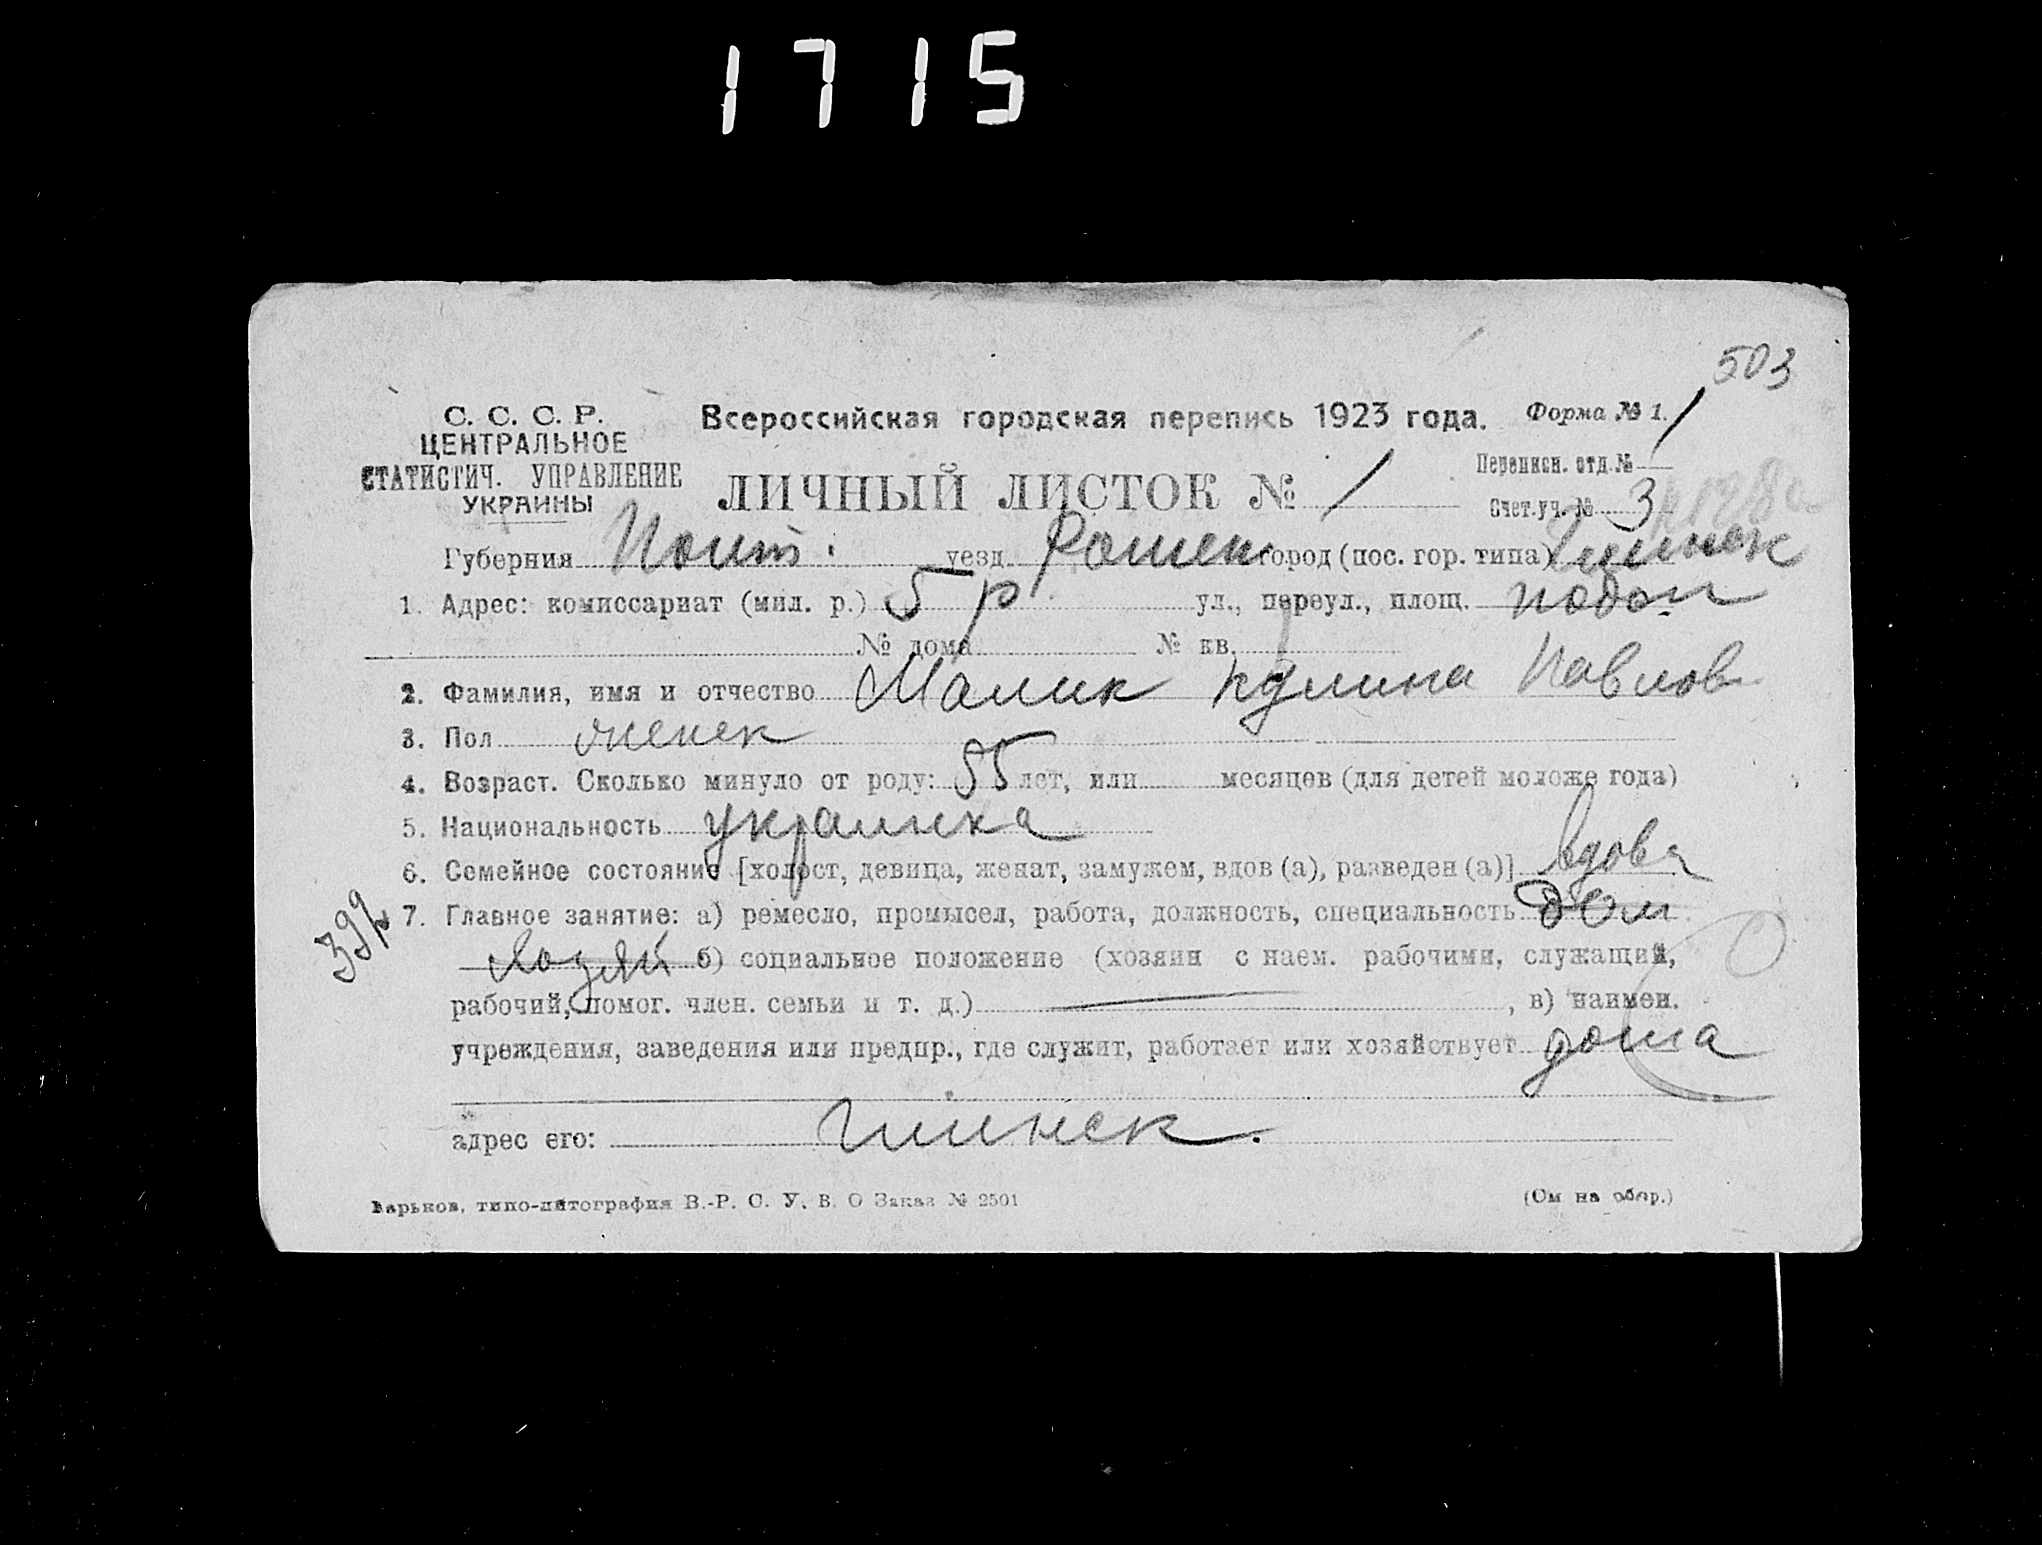 1715
503
С. С. С. Р.
ЦЕНТРАЛЬНОЕ
СТАТИСТИЧ. УПРАВЛЕНИЕ
УКРАИНЫ
Всероссийская городская перепись 1923 года. Форма № 1.
ЛИЧНЫЙ ЛИСТОК № 1
Переписн. отд. № 1
Счет. уч. № 3
Губерния Полт. уезд Ромен город (пос. гор. типа) Глинск
1. Адрес: комиссариат (мил. р.) 5 р ул., переул., площ. подол
№ дома № кв.
2. Фамилия, имя и отчество Малик Кулина Павлов
3. Пол женск
4. Возраст. Сколько минуло от роду: 55 лет, или месяцев (для детей моложе года)
5. Национальность украинка
6. Семейное состояние [холост, девица, женат, замужем, вдов (а), разведен (а)] вдова
399 7. Главное занятие: а) ремесло, промысел, работа, должность, специальность дом
хозяй б) социальное положение (хозяин с наем. рабочими, служащий,
рабочий, помог. член. семьи и т. д.) , в) наимен.
учреждения, заведения или предпр., где служит, работает или хозяйствует дома
адрес его: глинск.
Харьков, типо-литография В.-Р. С. У. В. О Заказ № 2501 (См на обор.)